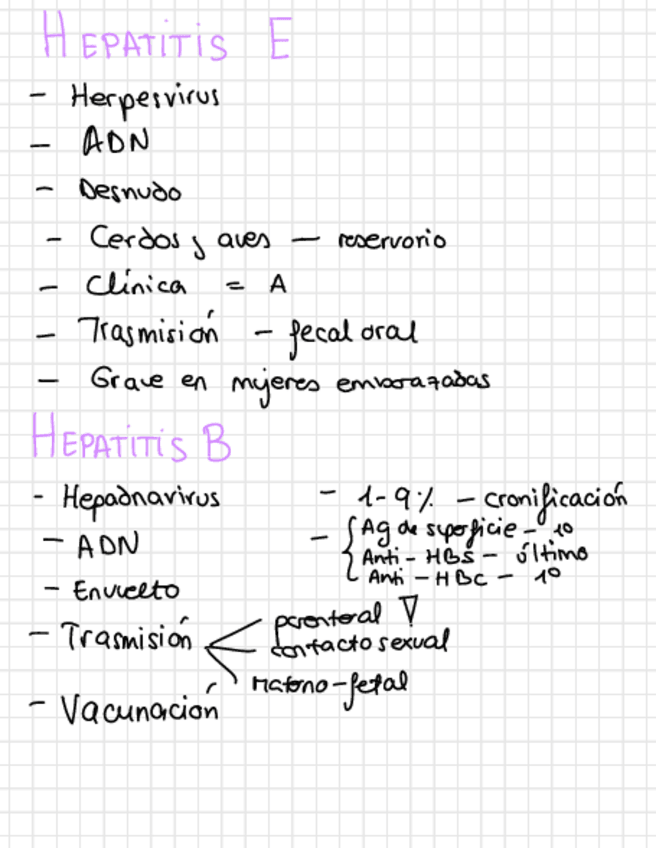 HEPATITIS E
- Herpesvirus
- ADN
- Desnudo
- Cerdos y aves — reservorio
- Clínica = A
- Trasmisión - fecal oral
- Grave en mujeres embarazadas
HEPATITIS B
- Hepadnavirus
- ADN
- Envuelto
- Trasmisión
parenteral ∇
contacto sexual
Materno-fetal
- Vacunación
- 1-9% - cronificación
- { Ag de superficie - 1º
Anti - HBS - último
Anti - HBC - 1º